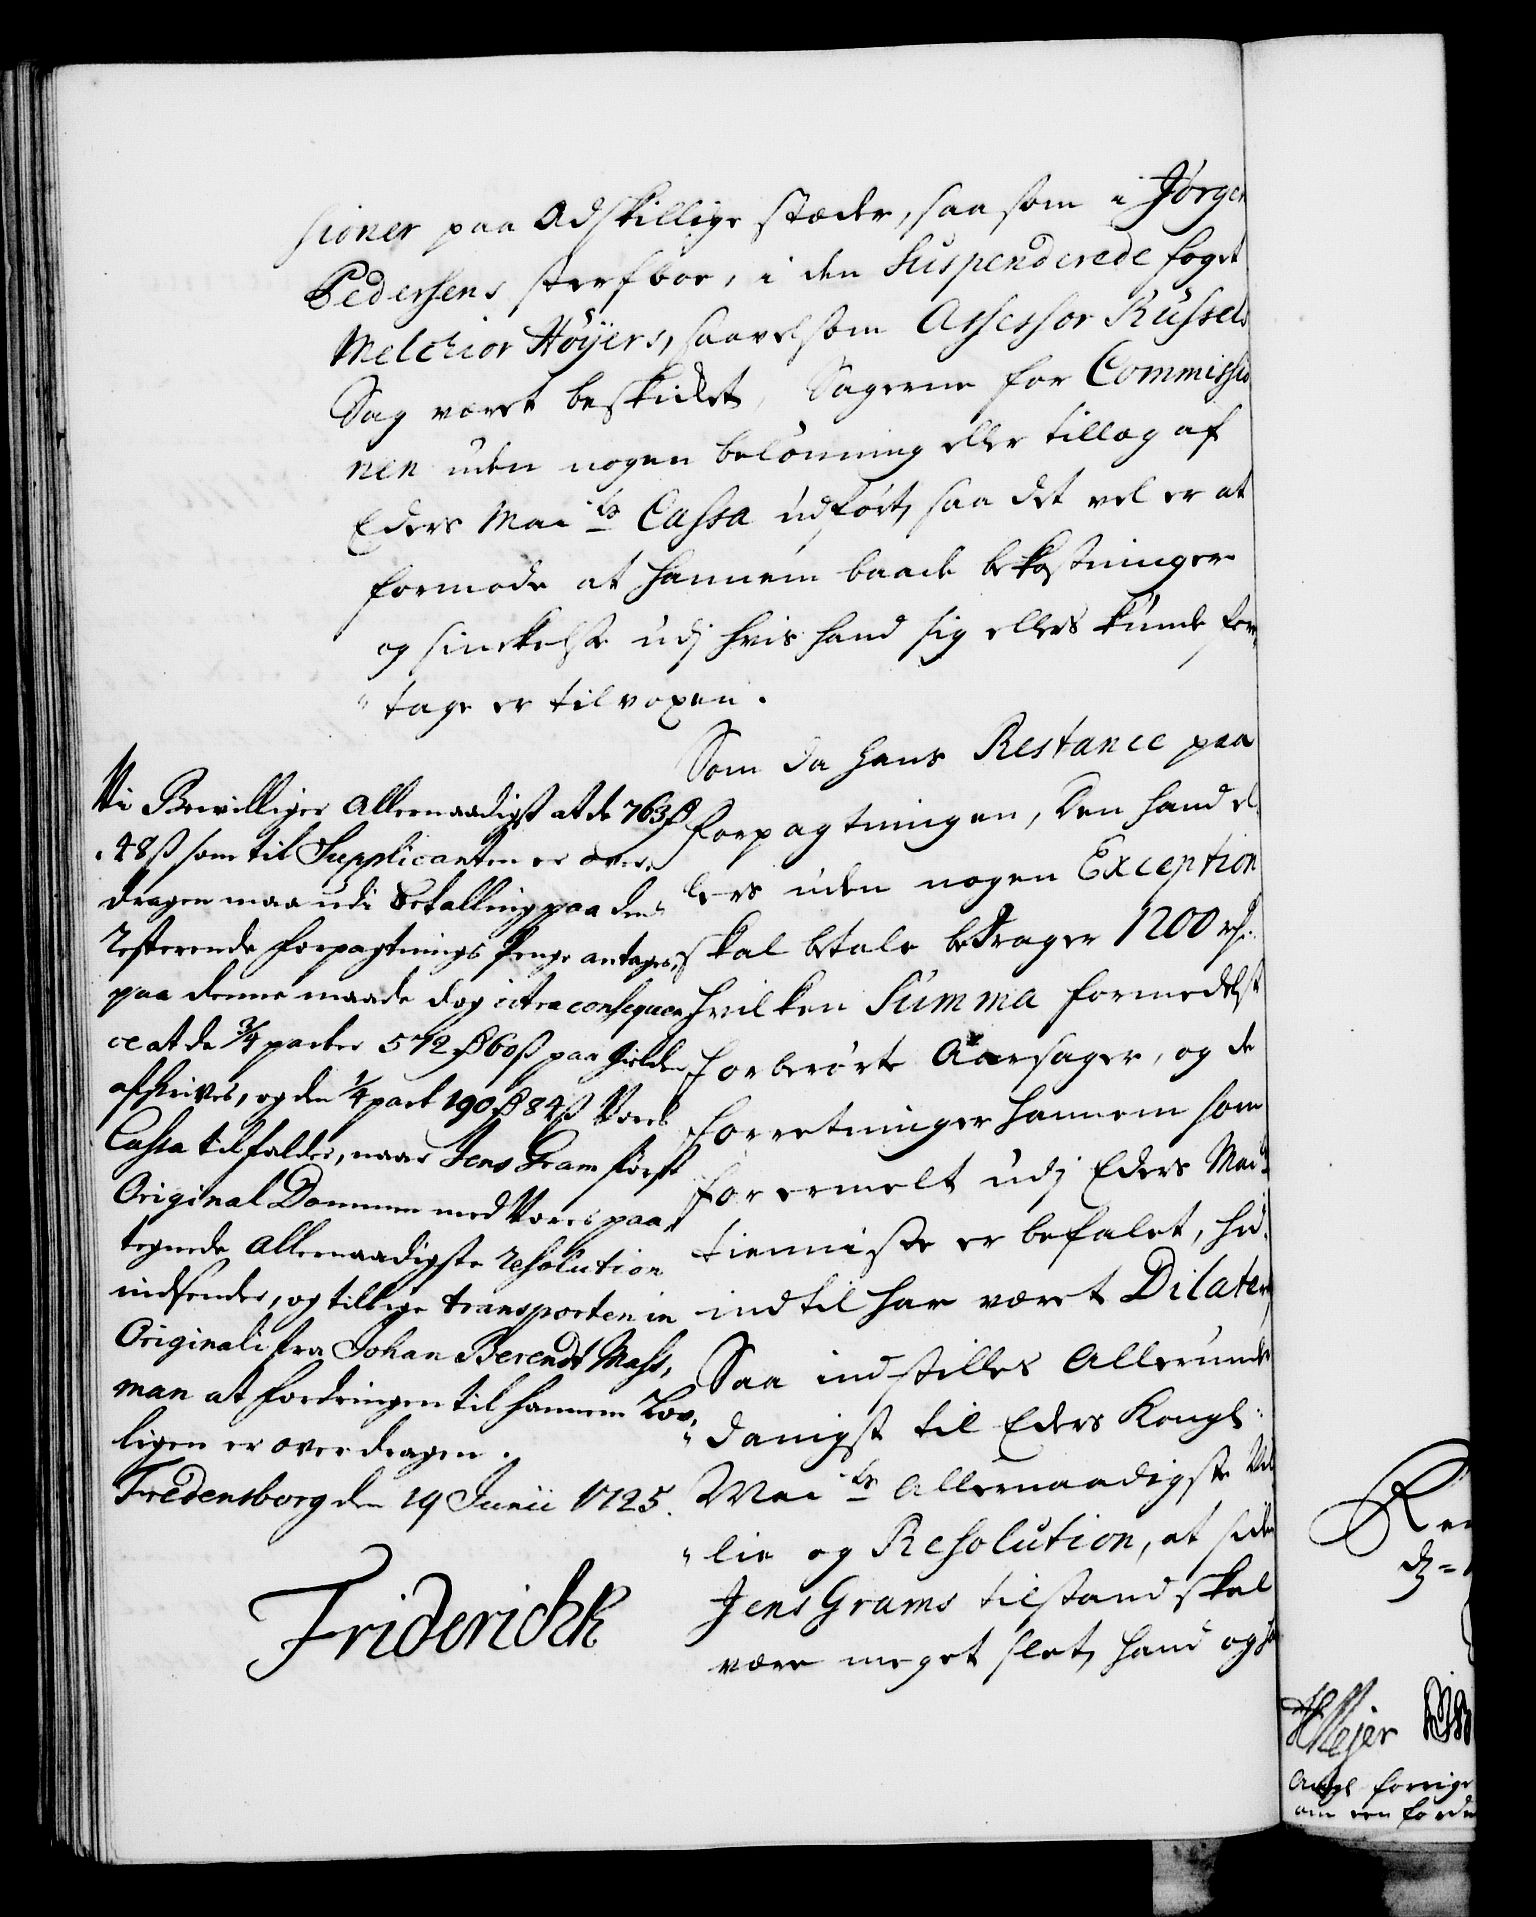 sioner paa Adskillige stæder, saa som i Jörgen
Pedersens sterfboe, i den Suspenderede foget
Melchior Höÿers, saavelsom Assessor Küssels
Sag været beskidket, Sagerne for Commissio
nen uden nogen belönning eller tillæg af
Eders Mai.ts Cassa udfört, saa det vel er at
formode at hannem baade bekostninger
og sinckelse udj hvis hand sig ellers kunde for,,
,,tage er tilvoxen.
Som da hans Restance paa
forpagtningen, Den hand el,,
lers uden nogen Exception
skal betale bedrager 1200 rd.
hvilken Summa formedelst
forberörte Aarsager, og de
forretninger hannem som
forermelt udj Eders Mai.ts
tienniste er befalet, hid,,
indtil har været Dilateret,
Saa indstilles Allerunde
,,danigst til Eders Kongl:
Mai.ts Allernaadigste Vil
,,lie og Resolution, at siden
Jens Grams tilstand skal
være meget slet, hand og
Vi Bevilliger Allernaadigst at de 763 rd
48 ß som til Supplicanten er over,,
dragen maa udi betalling paa den
resterende forpagtnings Penge antages,
paa denne maade dog citra consequen
ce at de 3/4 parter 572 rd 60 ß paa gielden
afskrives, og den 1/4 part 190 rd 84 ß Vores
Cassa tilfalder, naar Jens Gram först
Original Dommen med Vores paa
tegnede allernaadigste resolution
indsender, og tillige transporten in
Originali fra Johan Berendt Mass,,
man at fordringen til hannem Lov,,
ligen er overdragen.
Fredensborg den 19 Junii 1725.
Friderich R
HMejer
Angl. forrige
om een fordr